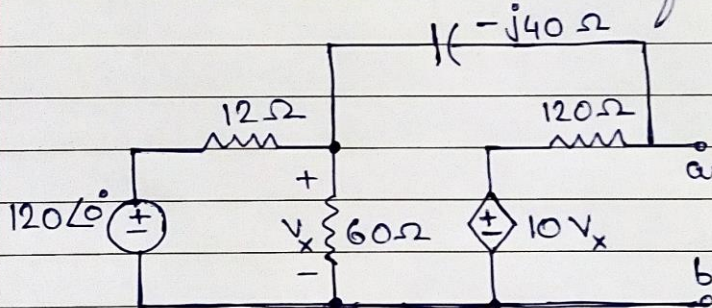 -j40 Ω
12Ω
120Ω
+
a
120∠0°
+
-
Vx
60Ω
+
-
10Vx
-
b